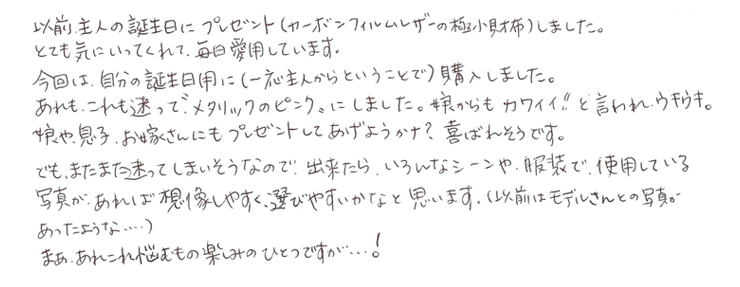 以前、主人の誕生日にプレゼント(カーボンフィルムレザーの極小財布)しました。
とても気にいってくれて、毎日愛用しています。
今回は、自分の誕生日用に(一応主人からということで)購入しました。
あれも、これも迷って"メタリックのピンク"にしました。娘からもカワイイ!!と言われ、ウキウキ。
娘や、息子、お嫁さんにもプレゼントしてあげようかナ?喜ばれそうです。
でも、またまた迷ってしまいそうなので、出来たら、いろんなシーンや、服装で、使用している
写真が、あれば想像しやすく、選びやすいかなと思います。(以前はモデルさんとの写真が
あったような....)
まぁ、あれこれ悩むもの楽しみのひとつですが...!